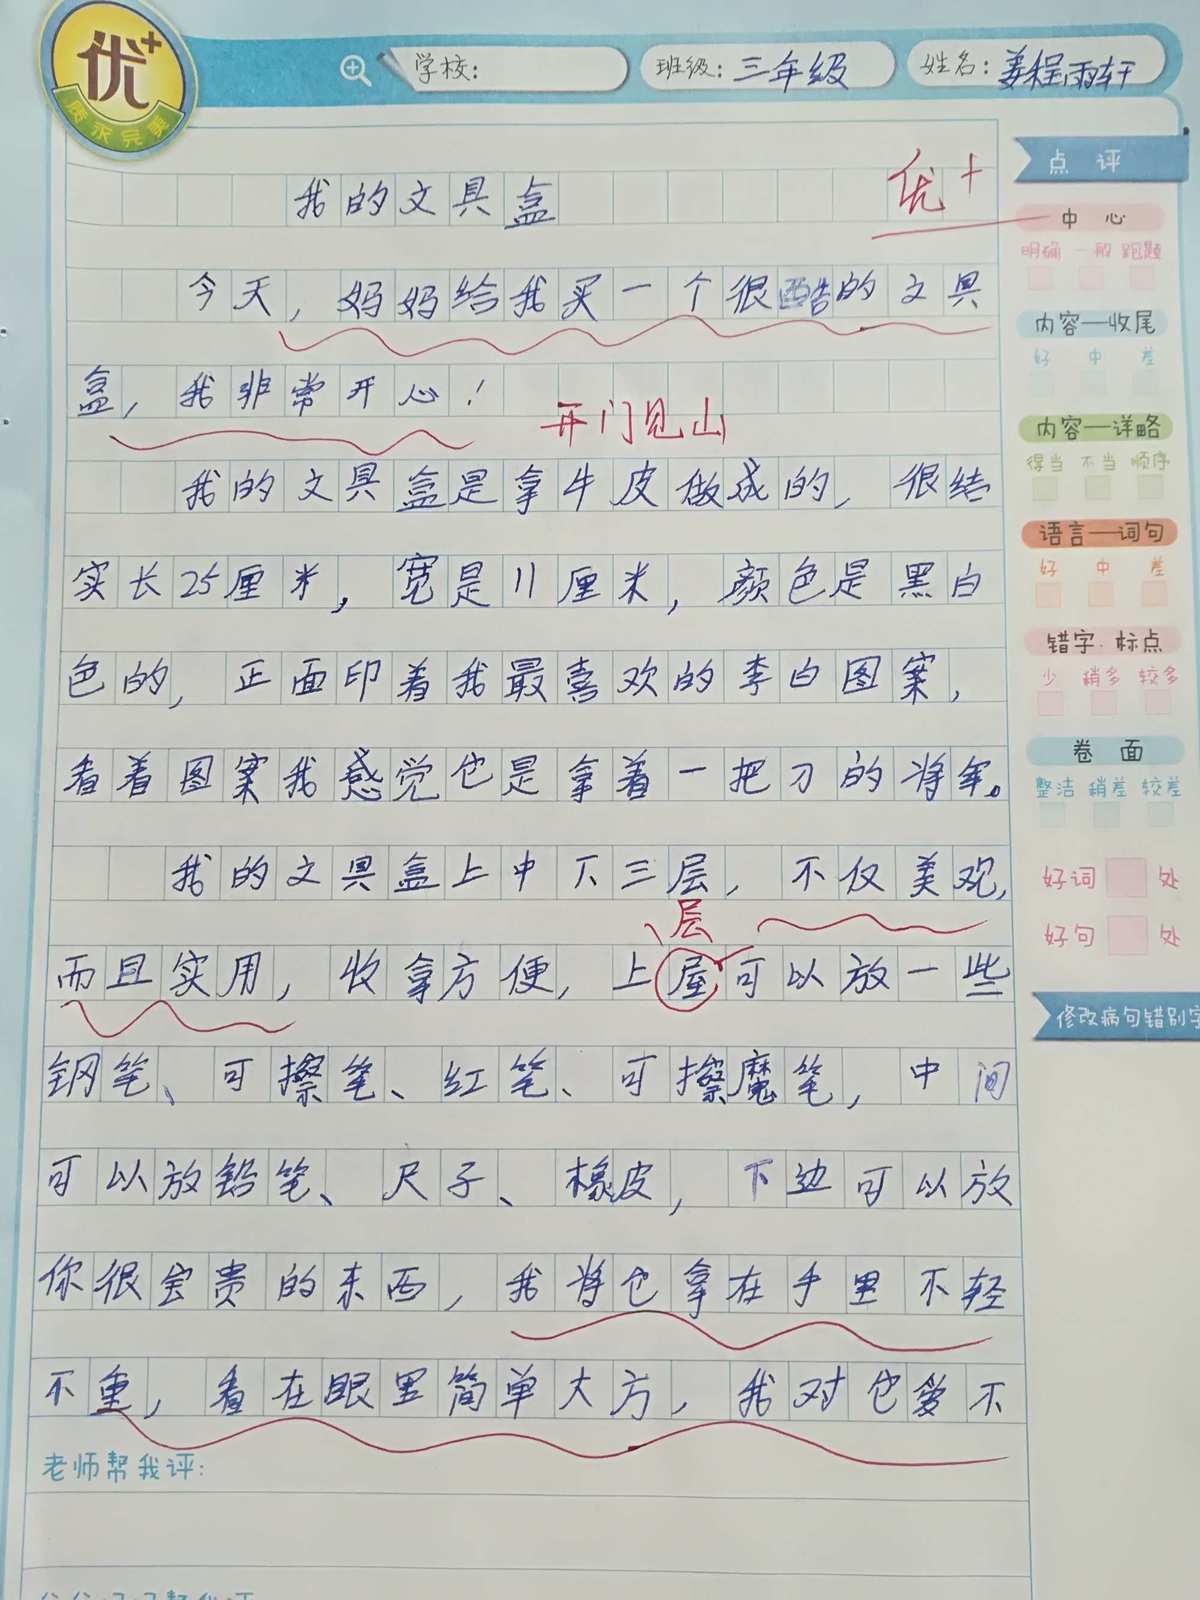 优+
质求完美
学校：
班级：三年级
姓名：姜程雨轩
点评
我的文具盒
优+
中心
明确 一般 跑题
今天，妈妈给我买一个很酷的文具
内容—收尾
好 中 差
盒，我非常开心！
开门见山
内容—详略
得当 不当 顺序
我的文具盒是拿牛皮做成的，很结
语言—词句
好 中 差
实长25厘米，宽是11厘米，颜色是黑白
错字·标点
少 稍多 较多
色的，正面印着我最喜欢的李白图案，
卷面
整洁 稍差 较差
看着图案我感觉也是拿着一把刀的将军。
我的文具盒上中下三层，不仅美观，
好词 处
层
好句 处
而且实用，收拿方便，上屋可以放一些
修改病句错别字
钢笔、可擦笔、红笔、可擦魔笔，中间
可以放铅笔、尺子、橡皮，下边可以放
你很宝贵的东西，我将它拿在手里不轻
不重，看在眼里简单大方，我对它爱不
老师帮我评：